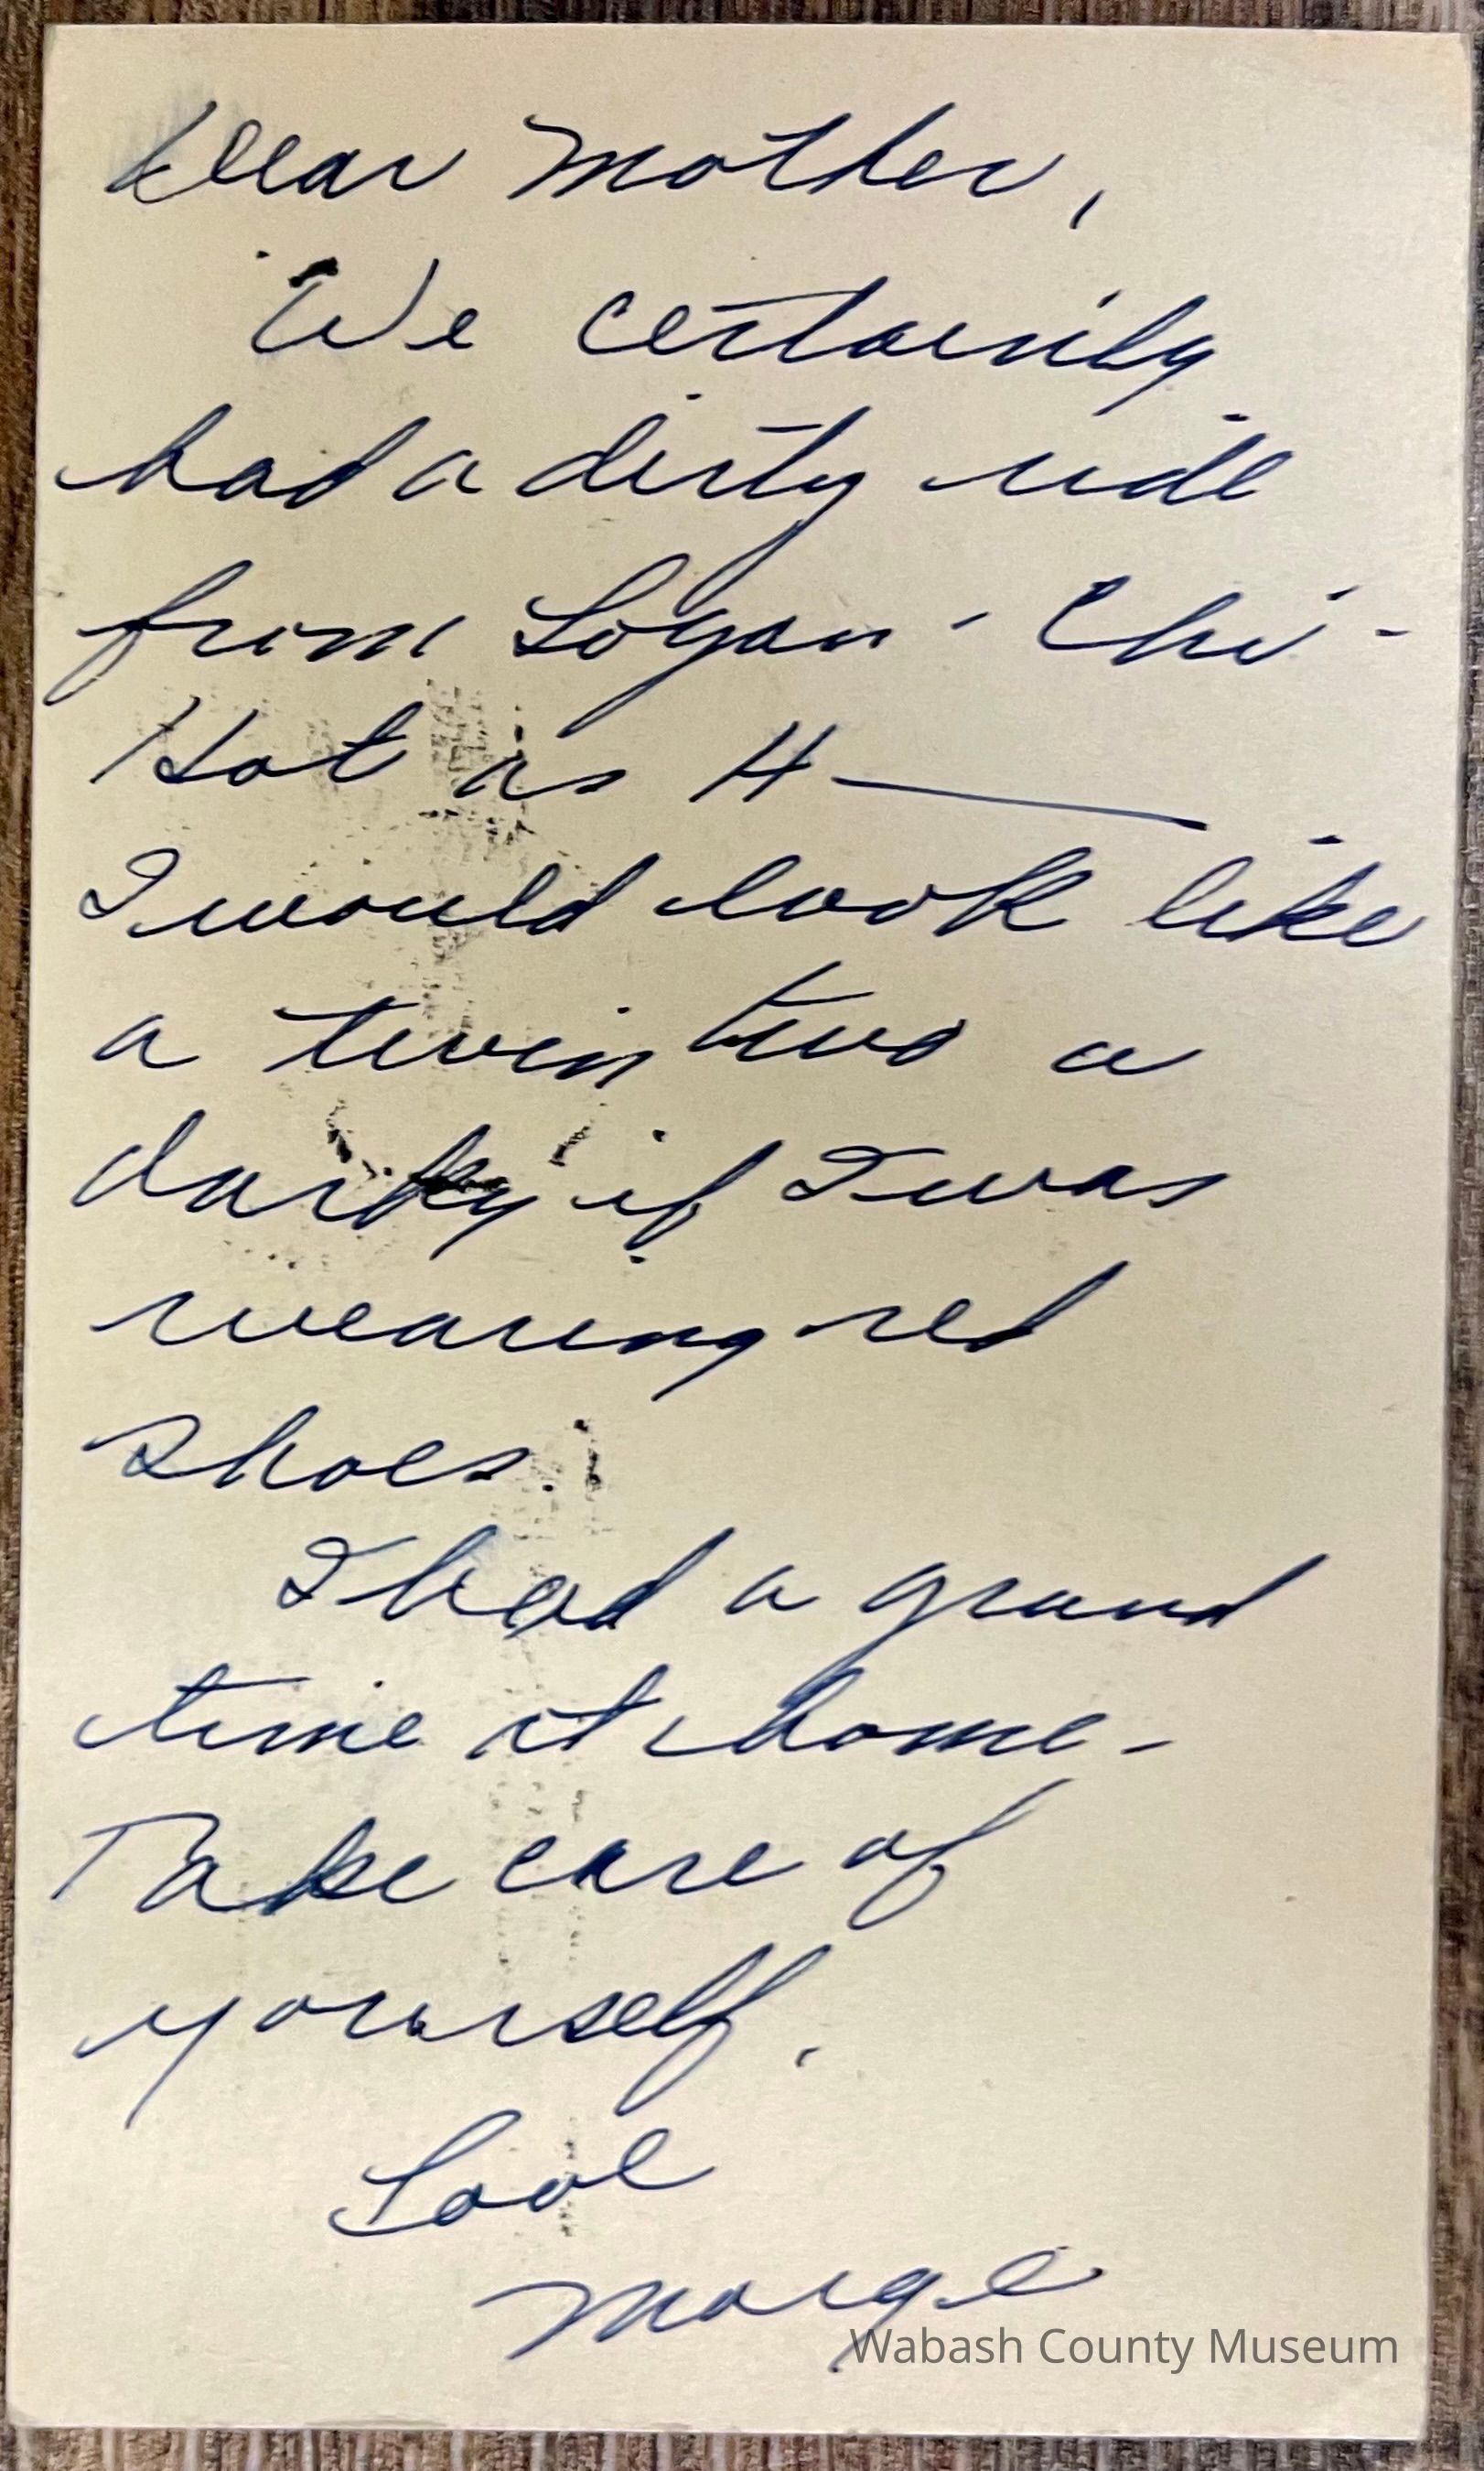 Dear Mother,
We certainly
had a dirty ride
from Logan - Chi -
Hot as H——
I would look like
a twin two a
darky if I was
wearing red
shoes.
I had a grand
time at home -
Take care of
yourself.
Love
Marge
Wabash County Museum